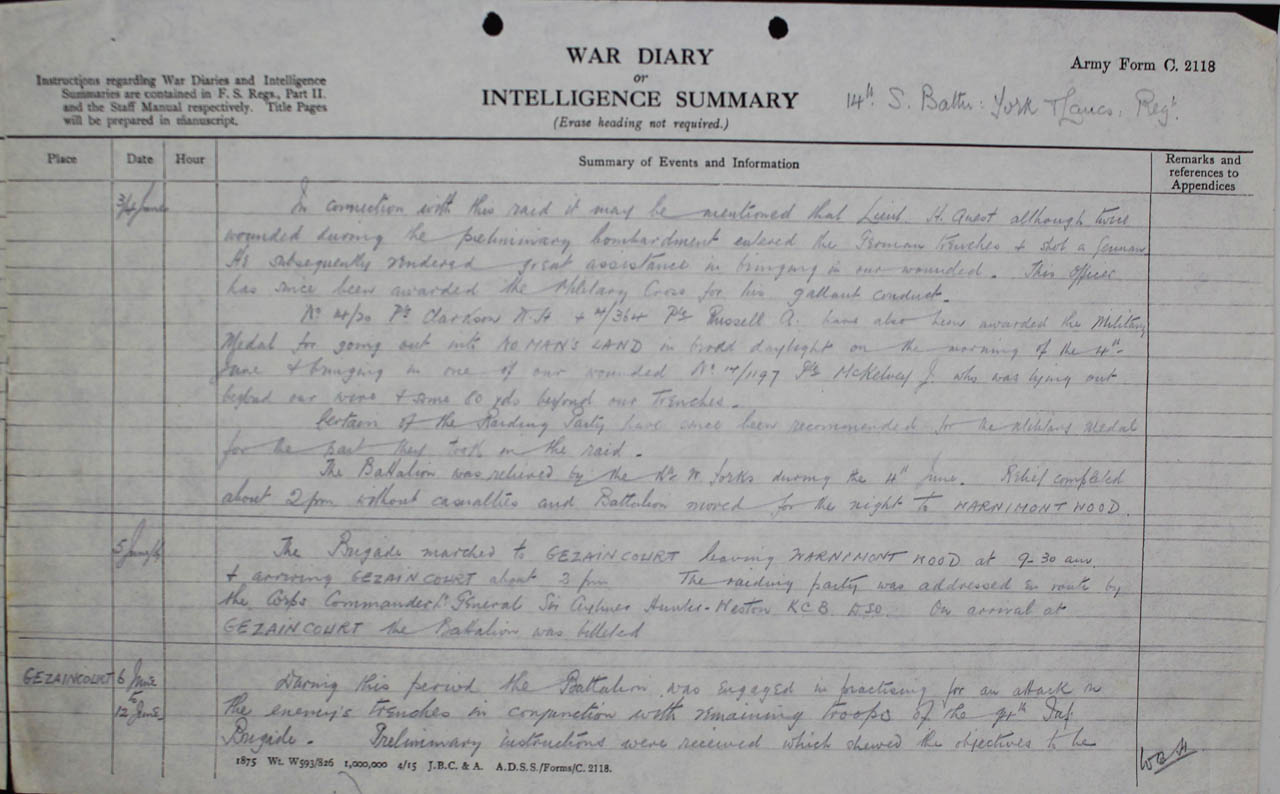 WAR DIARY
or
INTELLIGENCE SUMMARY
(Erase heading not required.)
Army Form C. 2118
Instructions regarding War Diaries and Intelligence
Summaries are contained in F. S. Regs., Part II.
and the Staff Manual respectively. Title Pages
will be prepared in manuscript.
14th. S. Battn: York & Lancs. Regt.
Place Date Hour Summary of Events and Information Remarks and
references to
Appendices
3/4 June In connection with this raid it may be mentioned that Lieut. H. Quest although twice
wounded during the preliminary bombardment entered the German trenches & shot a German.
He subsequently rendered great assistance in bringing in our wounded. This officer
has since been awarded the Military Cross for his gallant conduct.
Pte Clarkson & 14/364 Pte Russell A. have also been awarded the Military
Medal for going out into NO MAN'S LAND in broad daylight on the morning of the 4th
June & bringing in one of our wounded No 14/1197 Pte McKelvey J. who was lying out
beyond our wire & some 60 yds beyond our trenches.
Certain of the Raiding Party have since been recommended for the Military Medal
for the part they took in the raid.
The Battalion was relieved by the W. Yorks during the 4th June. Relief completed
about 2 pm without casualties and Battalion moved for the night to WARNIMONT WOOD.
5 June The Brigade marched to GEZAINCOURT leaving WARNIMONT WOOD at 9-30 am.
& arriving GEZAINCOURT about 2 pm The raiding party was addressed en route by
the Corps Commander Lt General Sir Aylmer Hunter-Weston KCB DSO. On arrival at
GEZAINCOURT the Battalion was billeted
GEZAINCOURT 6 June During this period the Battalion was engaged in practising for an attack on
to
12 June the enemy's trenches in conjunction with remaining troops of the 94th Inf.
Brigade. Preliminary instructions were received which shewed the objectives to be
1875 Wt. W593/826 1,000,000 4/15 J.B.C. & A. A.D.S.S./Forms/C. 2118.